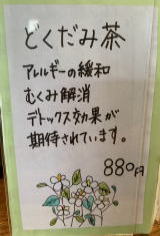 どくだみ茶
アレルギーの緩和
むくみ解消
デトックス効果が
期待されています。
880円